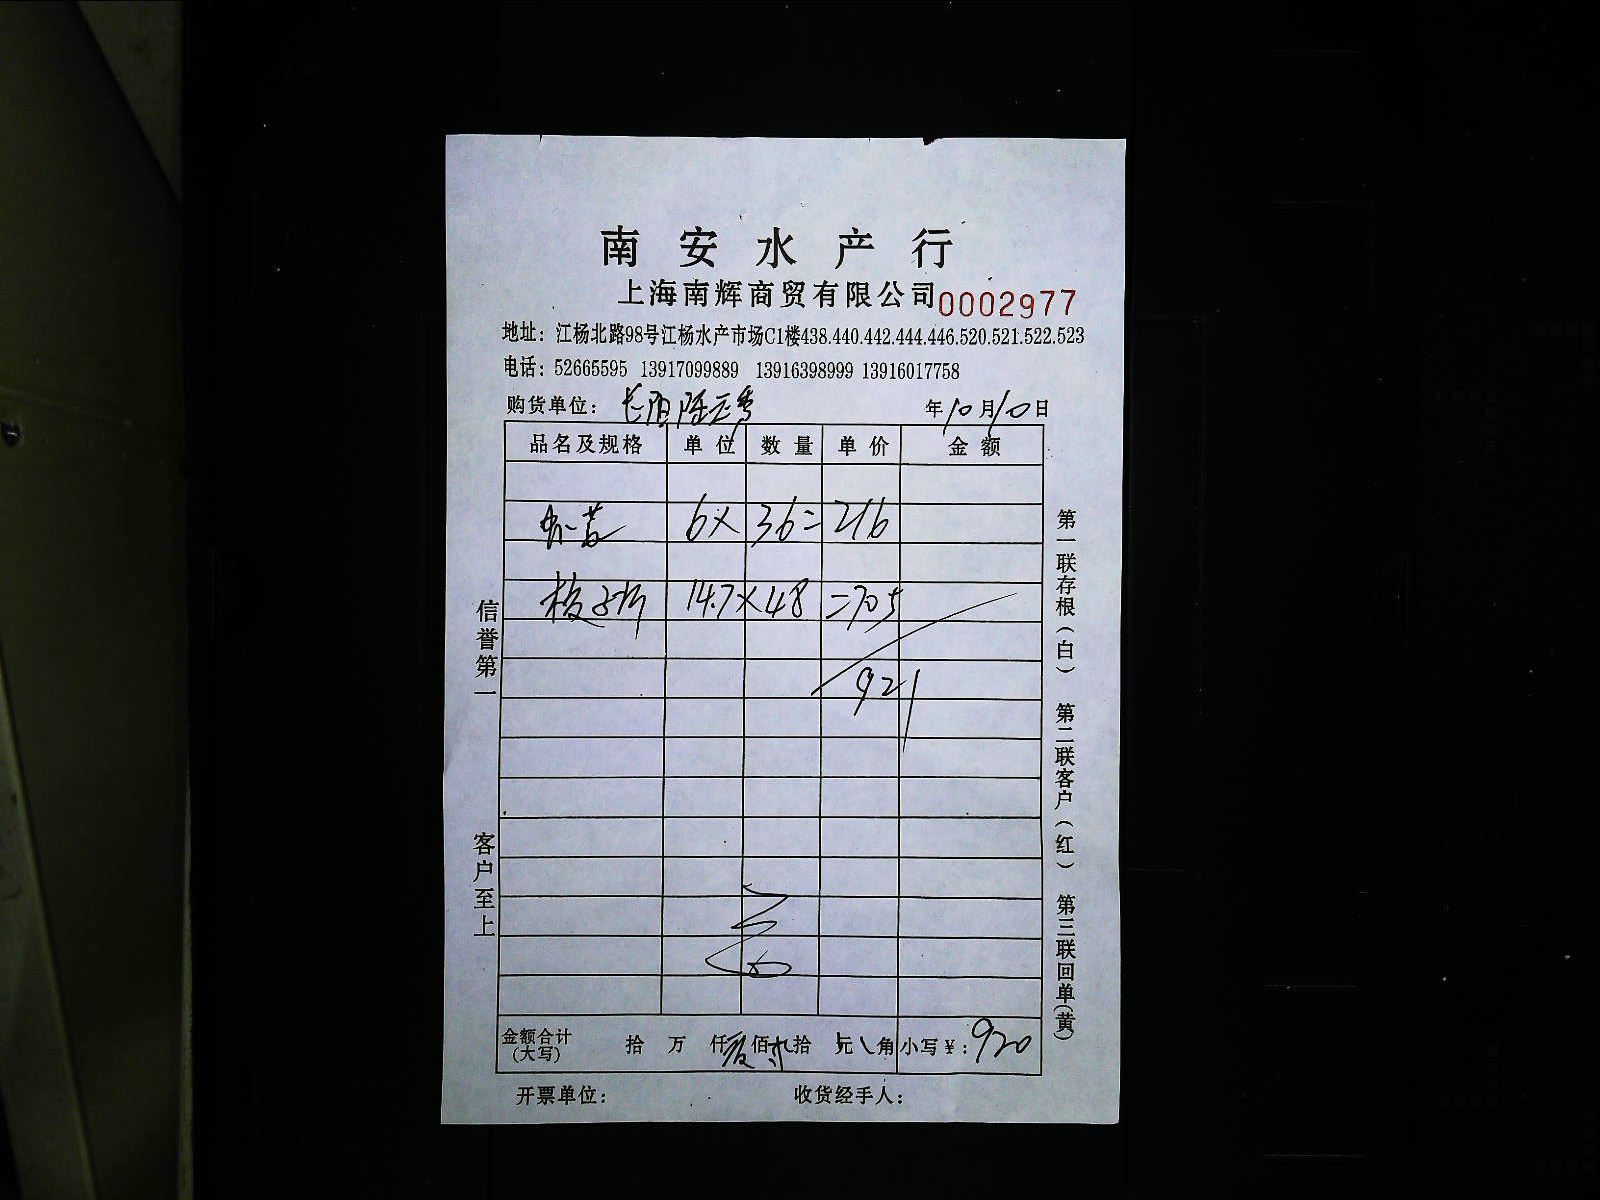 南安水产行
上海南辉商贸有限公司 0002977
地址：江杨北路98号江杨水产市场C1楼438.440.442.444.446.520.521.522.523
电话：52665595 13917099889 13916398999 13916017758
购货单位： 年10月10日
品名及规格 单位 数量 单价 金额
6× 36= 216
14.7× 48 =705
921
金额合计(大写) 拾 万 仟 佰 拾 元 角 小写￥：920
开票单位： 收货经手人：
信誉第一 客户至上
第一联存根(白) 第二联客户(红) 第三联回单(黄)